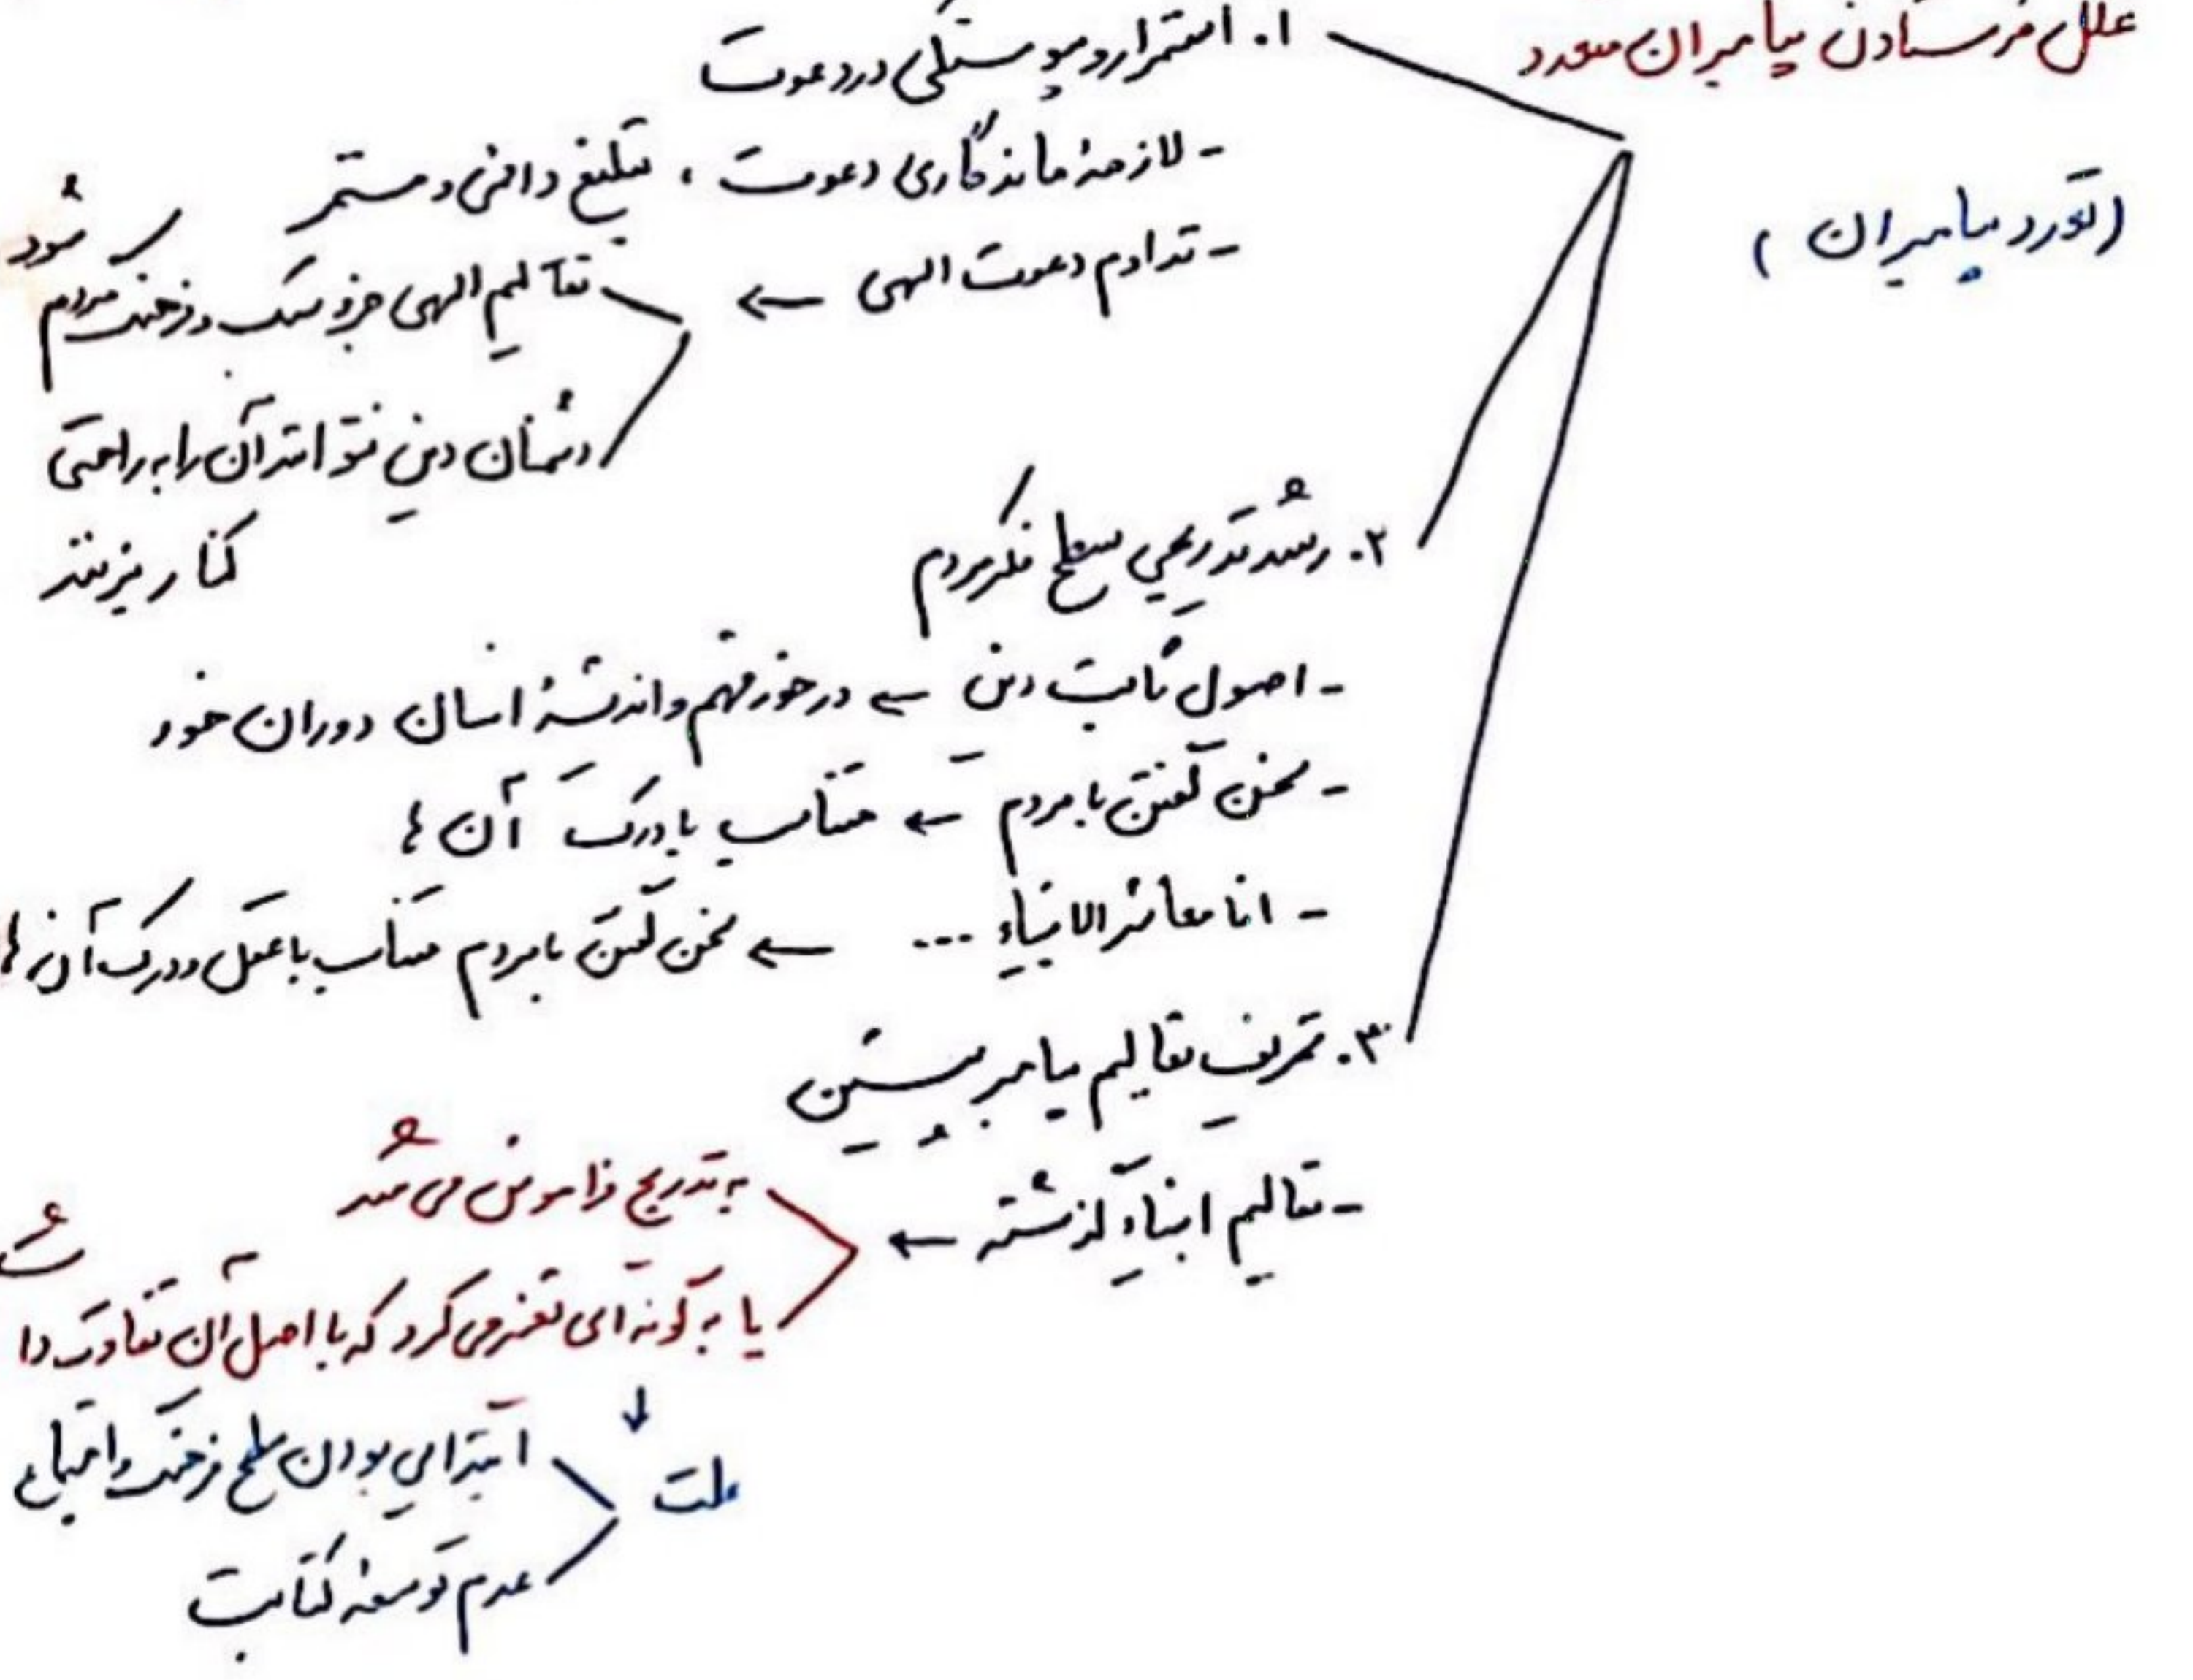 علل فرستادن پیامبران متعدد
(تعدد پیامبران)
۱. استمرار و پیوستگی در دعوت
- لازمهٔ ماندگاری دعوت، تبلیغ دائمی و مستمر
- تداوم دعوت الهی ←
تعالیم الهی جزو سبک و فرهنگ مردم شود
دشمنان دین نتوانند آن را به راحتی
کنار بزنند
۲. رشد تدریجی سطح فکر مردم
- اصول ثابت دین ← در خور فهم و اندیشهٔ انسان دوران خود
- سخن گفتن با مردم ← متناسب با درک آن ها
- انا معاشر الانبیاء ... ← سخن گفتن با مردم متناسب با عقل و درک آن ها
۳. تحریف تعالیم پیامبر پیشین
- تعالیم انبیاء گذشته ←
به تدریج فراموش می شد
یا به گونه ای تغییر می کرد که با اصل آن تفاوت داشت
↓
علت
ابتدایی بودن سطح فرهنگ و اجتماعی
عدم توسعهٔ کتابت